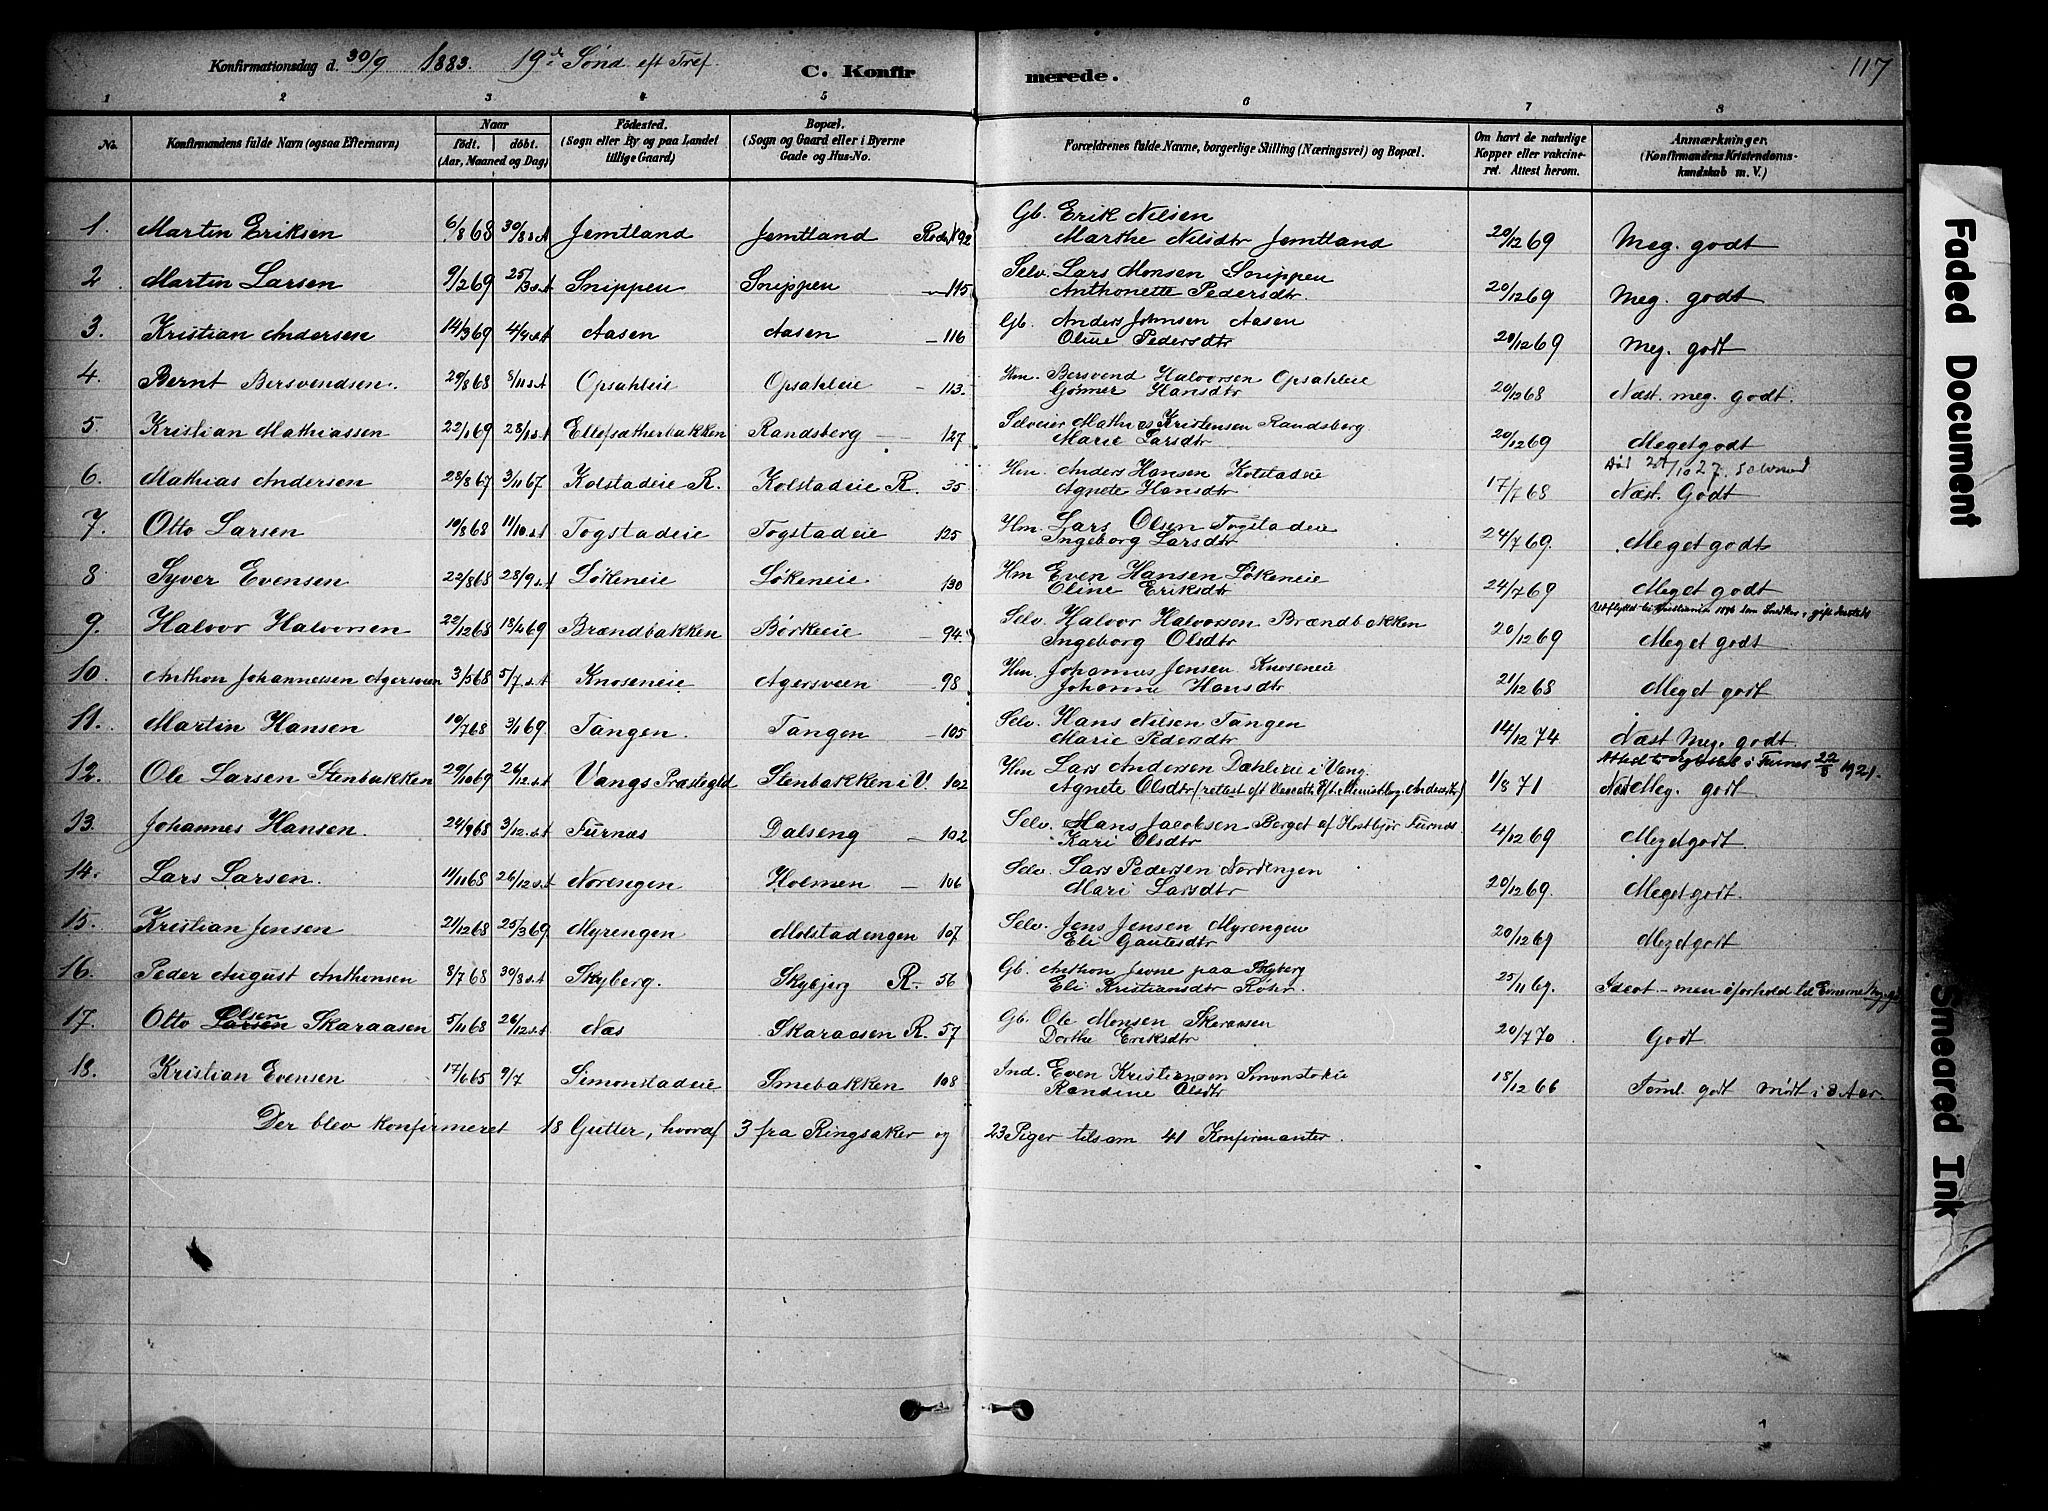 Konfirmationsdag d. 30/9 1883. 19de Sønd eft Tref. C. Konfir merede. 117
1 2 3 4 5 6 7 8
No. Konfirmandens fulde Navn (ogsaa Efternavn) Naar født. døbt. (Aar, Maaned og Dag) Fødested. (Sogn eller By og paa Landet tillige Gaard) Bopæl. (Sogn og Gaard eller i Byerne Gade og Hus-No. Forældrenes fulde Navne, borgerlige Stilling (Næringsvei) og Bopæl. Om havt de naturlige Kopper eller vakcineret. Attest herom. Anmærkninger. (Konfirmandens Kristendomskundskab m. V.)
1. Martin Eriksen 6/8 68 30/8 s.A Jemtland Jemtland 92 Gb. Erik Nilsen
Marthe Nilsdtr Jemtland 20/12 69 Meg. godt
2 Martin Larsen 9/2 69 25/3 s.A Snippen Snippen — 115 Selv. Lars Monsen Snippen
Anthonette Pedersdtr. 20/12 69 Meg. godt
3. Kristian Andersen 14/3 69 4/4 s.A Aasen Aasen — 116 Gb. Anders Johnsen Aasen
Oline Pedersdtr 20/12 69 Meg. godt
4. Bernt Bersvendsen. 29/8 68 8/11 s.A Opsahleie Opsahleie — 113. Hm. Bersvend Halvorsen Opsahleie
Gønner Hansdtr 20/12 68 Næst. meg. godt.
5 Kristian Mathiassen 22/1 69 28/1 s.A Ellefsætherbakken Randsberg — 127 Selveier Mathis Kristensen Randsberg
Marie Larsdtr 20/12 69 Meget godt
6. Mathias Andersen 28/8 67 3/11 67 Kolstadeie R. Kolstadeie R. 35 Hm. Anders Hansen Kolstadeie
Agnete Hansdtr 17/7 68 Næst. Godt
7. Otto Larsen 10/8 68 11/10 s.A Togstadeie Togstadeie 125 Hm Lars Olsen Togstadeie
Ingeborg Larsdtr 24/7 69. Meget godt
8 Syver Evensen 22/8 68 28/9 s.A Løkeneie Løkeneie 130 Hm Even Hansen Løkeneie
Oline Eriksdtr 24/7 69 Meget godt
9. Halvor Halvorsen 22/12 68 18/4 69 Brændbakken Børkeeie — 94. Selv. Halvor Halvorsen Brændbakken
Ingeborg Olsdtr 20/12 69 Meget godt
10. Anthon Johannesen Agersveen 3/5 68 5/7 s.A Knoseneie Agersveen — 98 Hm. Johannes Jensen Knoseneie
Johanne Hansdtr 21/12 68 Meget godt
11. Martin Hansen 10/7 68 3/1 69. Tangen. Tangen — 105 Selv. Hans Nilsen Tangen
Marie Pedersdtr 14/12 74 Næst Meg. godt.
12. Ole Larsen Stenbakken 29/10 69 26/12 s.A Vangs Præstegld Stenbakken i V. 102 Hm Lars Andersen Dæhlieie i Vang.
Agnete Olsdtr 1/8 71 Meg. godt
13. Johannes Hansen. 24/9 68 3/12 s.A Furnæs Dalseng — 102 Selv. Hans Jacobsen Berget af Furnæs.
Kari Olsdtr 4/12 69 Meget godt.
14. Lars Larsen. 11/11 68 26/12 s.A Norengen Holmen — 106 Selv. Lars Pedersen Nordengen
Mari Larsdtr 20/12 69. Meget godt.
15. Kristian Jensen 21/12 68 25/3 69. Myrengen Molstadengen 107 Selv. Jens Jensen Myrengen
Eli Gautesdtr 20/12 69 Meget godt
16 Peder August Anthonsen 8/7 68 30/8 s.A Skyberg. Skybjerg R. 56 Gb. Anthon Jevne paa Skyberg
Eli Kristiansdtr Røhr. 25/11 69. Ideot — men i forhold til Evnerne
17. Otto Larsen Olsen Skaraasen 5/11 68 26/12 s.A Næs Skaraasen R. 57 Gb. Ole Monsen Skaraasen
Dorthe Eriksdtr 20/7 70 Godt
18. Kristian Evensen 17/6 65 9/7 Simenstadeie Smebakken 108 Ind. Even Kristiansen
Randine Olsdtr 18/12 66 Toml. godt mødt i 3 Aar
Der blev konfirmeret 18 Gutter, hvoraf 3 fra Ringsaker og 23 Piger tilsam 41 Konfirmanter.
Faded Document
Smeared Ink